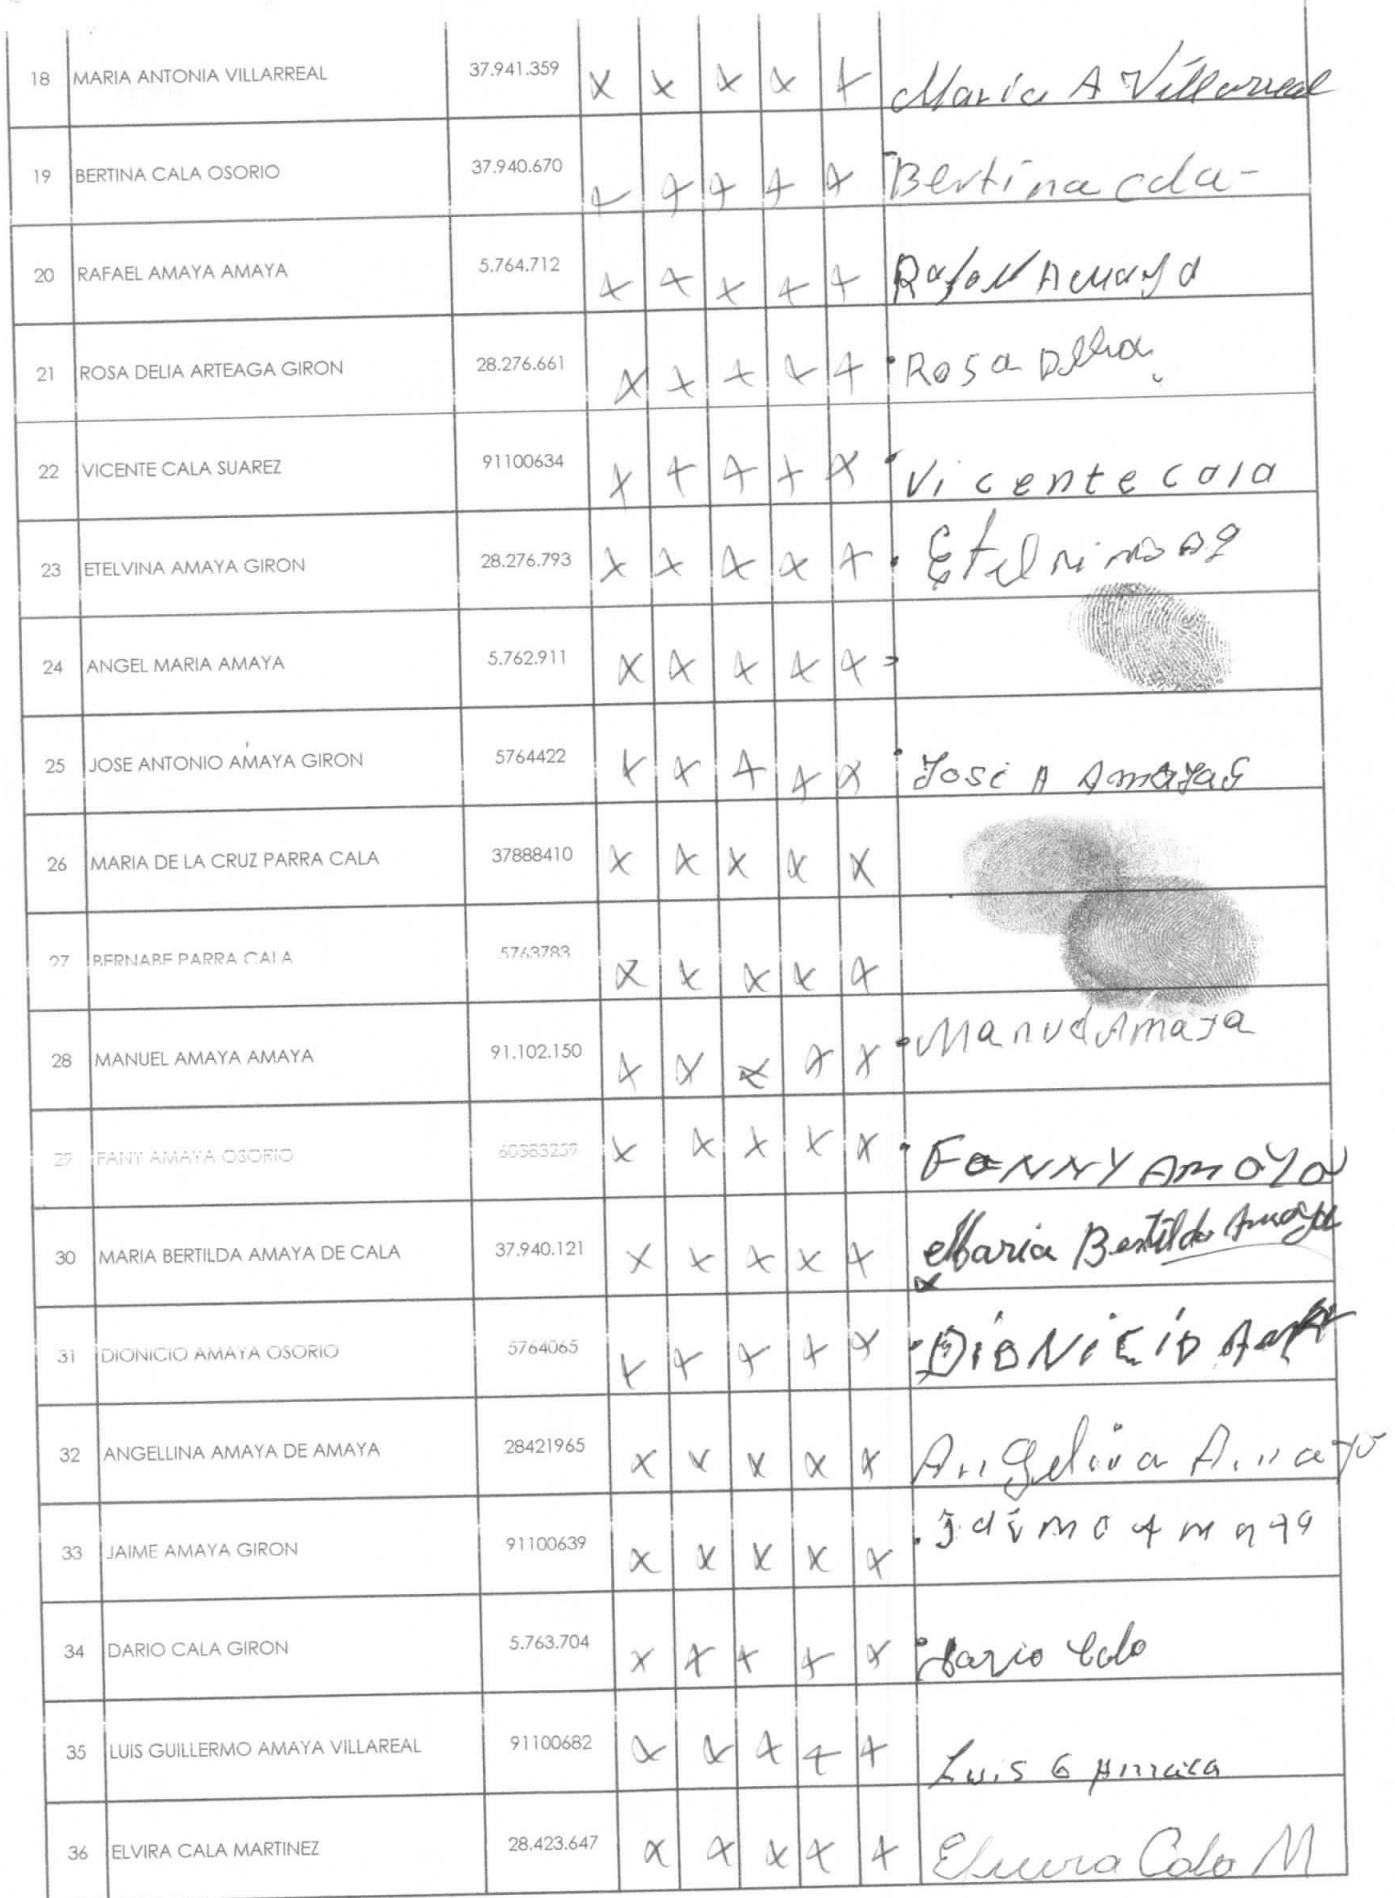 18 MARIA ANTONIA VILLARREAL 37.941.359 X X X X X Maria A Villarreal
19 BERTINA CALA OSORIO 37.940.670 X X X X X Bertina cala -
20 RAFAEL AMAYA AMAYA 5.764.712 X X X X X Rafael Amaya
21 ROSA DELIA ARTEAGA GIRON 28.276.661 X X X X X Rosa Delia
22 VICENTE CALA SUAREZ 91100634 X X X X X Vicente cala
23 ETELVINA AMAYA GIRON 28.276.793 X X X X X Etelvina AG
24 ANGEL MARIA AMAYA 5.762.911 X X X X X
25 JOSE ANTONIO AMAYA GIRON 5764422 X X X X X Jose A Amaya G
26 MARIA DE LA CRUZ PARRA CALA 37888410 X X X X X
27 BERNABE PARRA CALA 5763783 X X X X X
28 MANUEL AMAYA AMAYA 91.102.150 X X X X X Manuel Amaya
29 FANY AMAYA OSORIO 60383259 X X X X X FANNY AMAYA
30 MARIA BERTILDA AMAYA DE CALA 37.940.121 X X X X X Maria Bertilda Amaya
31 DIONICIO AMAYA OSORIO 5764065 X X X X X DIONICIO
32 ANGELLINA AMAYA DE AMAYA 28421965 X X X X X Angelina Amaya
33 JAIME AMAYA GIRON 91100639 X X X X X Jaime Amaya
34 DARIO CALA GIRON 5.763.704 X X X X X Dario Cala
35 LUIS GUILLERMO AMAYA VILLAREAL 91100682 X X X X X Luis G Amaya
36 ELVIRA CALA MARTINEZ 28.423.647 X X X X X Elvira Cala M